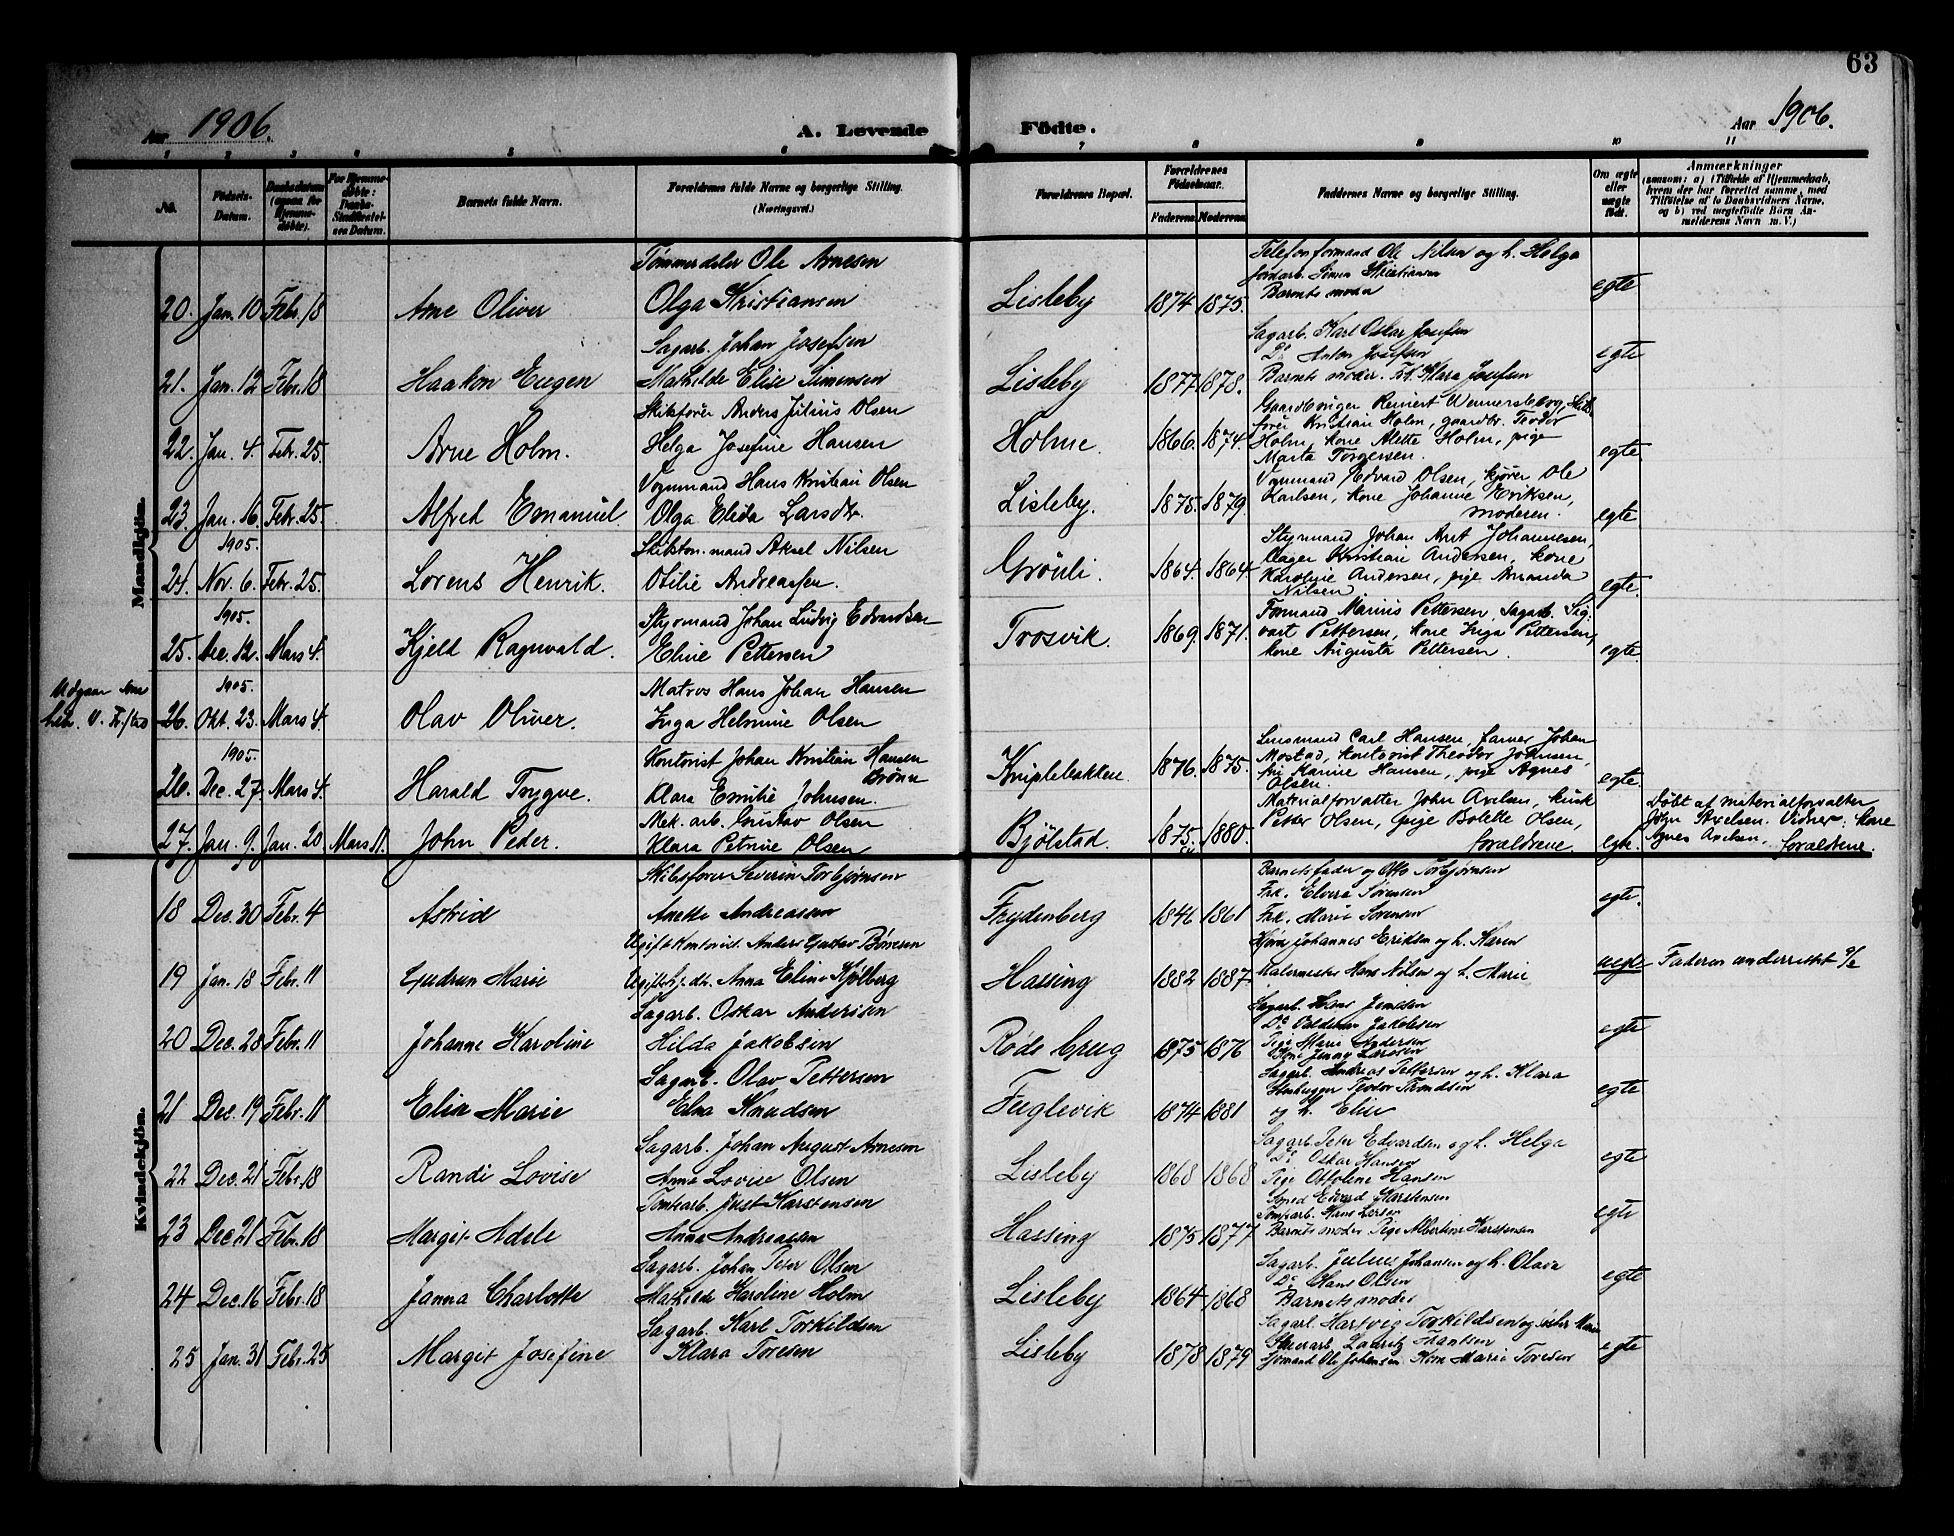 63
Aar 1906.
A. Levende Födte.
Aar 1906.
1 2 3 4 5 6 7 8 9 10 11
No.
Födsels-Datum.
Daabsdatum (ogsaa for Hjemme-döbte).
For Hjemme-döbte: Daabs-Stadfæstel-ses Datum.
Barnets fulde Navn.
Forældrenes fulde Navne og borgerlige Stilling. (Næringsvei.)
Forældrenes Bopæl.
Forældrenes Födselsaar.
Faderens Moderens
Faddernes Navne og borgerlige Stilling.
Om ægte eller uægte födt.
Anmærkninger
(saasom: a) i Tilfælde af Hjemmedaab, hvem der har forrettet samme, med Tilföielse af to Daabsvidners Navne, og b) ved uægtefödte Börn An-melderens Navn m. V.)
Mandkjön.
Tømmerdeler Ole Arnesen
Telefonformand Ole Nilsen og h. Helga
Jordarb. Simen Kristiansen
20. Jan. 10 Febr. 18 Arne Oliver Olga Kristiansen Lisleby 1874 1875. Barnets moder egte
Sagarb. Johan Josefsen
Sagarb. Karl Oskar Josefsen
Do Anton Josefsen
21. Jan. 12 Febr. 18 Haakon Eugen Mathilde Elise Simensen Lisleby 1877 1878. Barnets moder. Frk. Klara Josefsen egte
Skibsfører Anders Julius Olsen
Gaardbruger Reinert Wennersborg, Skibs
fører Kristian Holm, gaardbr. Teodor
22. Jan. 4. Febr. 25. Arne Holm. Helga Josefine Hansen Holme. 1866. 1874. Holm, kone Alette Holm, pige
Marta Torgersen. egte
Vognmand Hans Kristian Olsen
Vognmand Edvard Olsen, kjører Ole
23. Jan. 16. Febr. 25. Alfred Emanuel. Olga Elida Larsdtr. Lisleby. 1875. 1879. Karlsen, kone Johanne Eriksen,
moderen. egte
1905.
Skibstøm.mand Aksel Nilsen
Styrmand Johan Ant Johannesen,
Kristian Andersen, kone
24. Nov. 6. Febr. 25. Lorens Henrik. Otilie Andreassen. Grønli. 1864. 1864. Karoline Andersen, pige Amanda
Nilsen egte
1905.
Styrmand Johan Ludvig Edvardsen
Formand Marius Pettersen, Sagarb. Sig-
25. Dec. 12. Mars 4. Kjeld Ragnvald. Eline Pettersen Trosvik. 1869. 1871. vart Pettersen, kone Inga Pettersen,
kone Augusta Pettersen. egte
1905.
Udgaar
Matros Hans Johan Hansen
26. Okt. 23. Mars 4. Olav Oliver. Inga Helmine Olsen
1905.
Kontorist Johan Kristian Hansen
Grønn
Lensmand Carl Hansen, farver Johan
Mostad, kontorist Theodor Johnsen,
26. Dec. 27. Mars 4. Harald Trygve. Klara Emilie Johnsen. Kniplebakken. 1876. 1875. fru Karine Hansen, pige Agnes
Olsen. egte
Mek. arb. Gustav Olsen
Materialforvalter John Axelsen, kusk
27. Jan. 9. Jan. 20 Mars 11. John Peder. Klara Petrine Olsen Bjølstad. 1875. 1880. Petter Olsen, pige Bolette Olsen,
forældrene. egte
Døbt af materialforvalter
John Axelsen. Vidner: kone
Agnes Axelsen, forældrene.
Kvindekjön.
Skibsfører Severin Torbjørnsen
Barnets fader og Otto Torbjørnsen
Frk. Elvira Sørensen
18 Dec. 30 Febr. 4 Astrid Anette Andreassen Frydenberg 1846 1861 Frk. Marie Sørensen egte.
Ugift Kontorist. Anders Gustav Børresen
Kjører Johannes Eriksen og h. Karen
19 Jan. 18 Febr. 11 Gudrun Marie Ugift Anna Eline Kjølberg Hassing 1882 1887 Malermester Hans Nilsen og h. Marie uegte Faderen underrettet 9/2
Sagarb. Oskar Andersen
Sagarb. Hans Jensen
Do Valdemar Jakobsen
20 Dec. 28 Febr. 11 Johanne Karoline Hilda Jakobsen Røds brug 1875 1876 Pige Marie Andersen
Kone Jenny Larssen egte
Sagarb. Olav Pettersen
Sagarb. Andreas Pettersen og h. Klara
Stenhugger Teodor Trondsen
21 Dec. 19 Febr. 11 Elin Marie Elna Knudsen Fuglevik 1874 1881 og h. Elise egte
Sagarb. Johan August Arnesen
Sagarb. Peter Edvardsen og h. Helga
Do Oskar Hansen
22 Dec. 21 Febr. 18 Randi Lovise Anna Lovise Olsen Lisleby 1868 1868 Pige Ottoline Hansen egte
Tomtarb. Just Karstensen
Smed Edvard Karstensen
Tomtarb. Hans Larsen
23 Dec 21 Febr. 18 Margit Adele Anna Andreassen Hassing 1875 1877 Barnets moder Pige Albertine Karstensen egte
Sagarb. Johan Peter Olsen
Sagarb. Julius Johansen og h. Olava
Do Hans Olsen
24 Dec. 16 Febr. 18 Janna Charlotte Mathilde Karoline Holm Lisleby 1864 1868 Barnets moder egte
Sagarb. Karl Torkildsen
Sagarb. Hartvig Torkildsen og søster Marie
Stuerarb. Lauritz Frantsen
25 Jan. 31 Febr. 25 Margit Josefine Klara Toresen Lisleby 1878 1879 Sjømand Ole Johansen Kone Marie Toresen egte